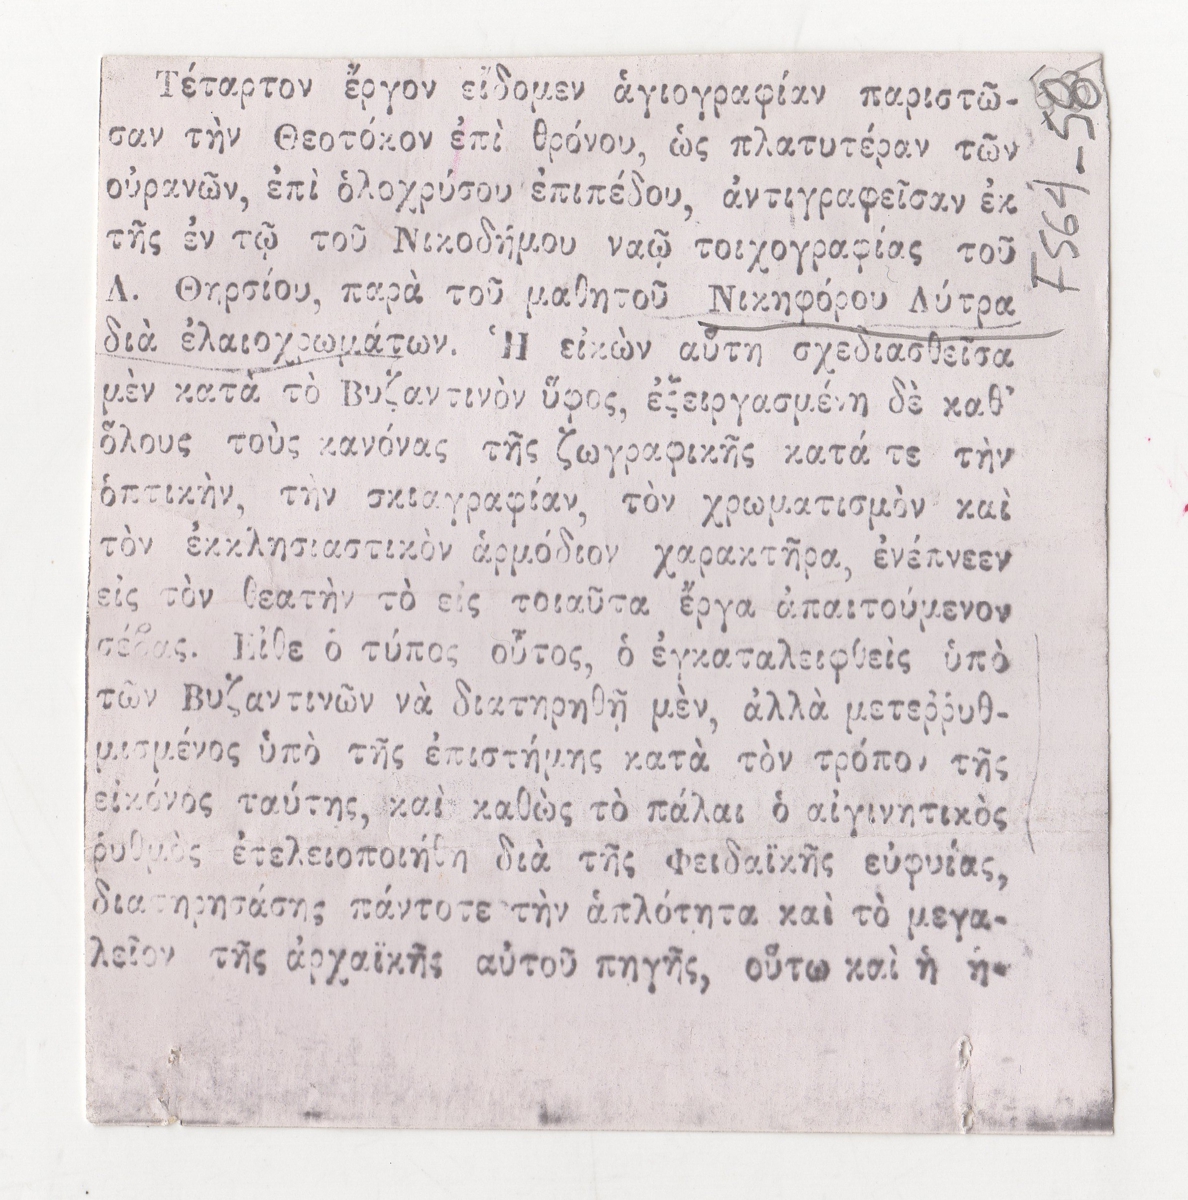 Τέταρτον ἔργον εἴδομεν ἁγιογραφίαν παριστῶ-
σαν τὴν Θεοτόκον ἐπὶ θρόνου, ὡς πλατυτέραν τῶν
οὐρανῶν, ἐπὶ ὁλοχρύσου ἐπιπέδου, ἀντιγραφεῖσαν ἐκ
τῆς ἐν τῷ τοῦ Νικοδήμου ναῷ τοιχογραφίας τοῦ
Λ. Θηρσίου, παρὰ τοῦ μαθητοῦ Νικηφόρου Λύτρα
διὰ ἐλαιοχρωμάτων. Ἡ εἰκὼν αὕτη σχεδιασθεῖσα
μὲν κατὰ τὸ Βυζαντινὸν ὕφος, ἐξειργασμένη δὲ καθ’
ὅλους τοὺς κανόνας τῆς ζωγραφικῆς κατά τε τὴν
ὀπτικὴν, τὴν σκιαγραφίαν, τὸν χρωματισμὸν καὶ
τὸν ἐκκλησιαστικὸν ἁρμόδιον χαρακτῆρα, ἐνέπνεεν
εἰς τὸν θεατὴν τὸ εἰς τοιαῦτα ἔργα ἀπαιτούμενον
σέβας. Εἴθε ὁ τύπος οὗτος, ὁ ἐγκαταλειφθεὶς ὑπὸ
τῶν Βυζαντινῶν νὰ διατηρηθῇ μὲν, ἀλλὰ μετεῤῥυθ-
μισμένος ὑπὸ τῆς ἐπιστήμης κατὰ τὸν τρόπον τῆς
εἰκόνος ταύτης, καὶ καθὼς τὸ πάλαι ὁ αἰγινητικὸς
ῥυθμὸς ἐτελειοποιήθη διὰ τῆς Φειδαϊκῆς εὐφυίας,
διατηρησάσης πάντοτε τὴν ἁπλότητα καὶ τὸ μεγα-
λεῖον τῆς ἀρχαϊκῆς αὐτοῦ πηγῆς, οὕτω καὶ ἡ ἡ-